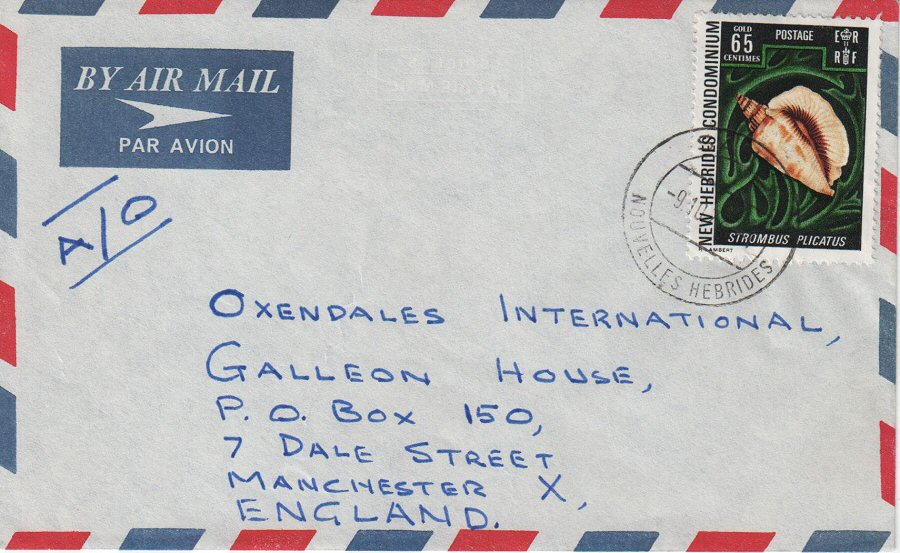 BY AIR MAIL
PAR AVION
A/O
GOLD
65
CENTIMES
POSTAGE
E R
R F
NEW HEBRIDES CONDOMINIUM
STROMBUS PLICATUS
LAMBERT
-9.10
NOUVELLES HEBRIDES
OXENDALES INTERNATIONAL,
GALLEON HOUSE,
P. O. BOX 150,
7 DALE STREET
MANCHESTER X,
ENGLAND.